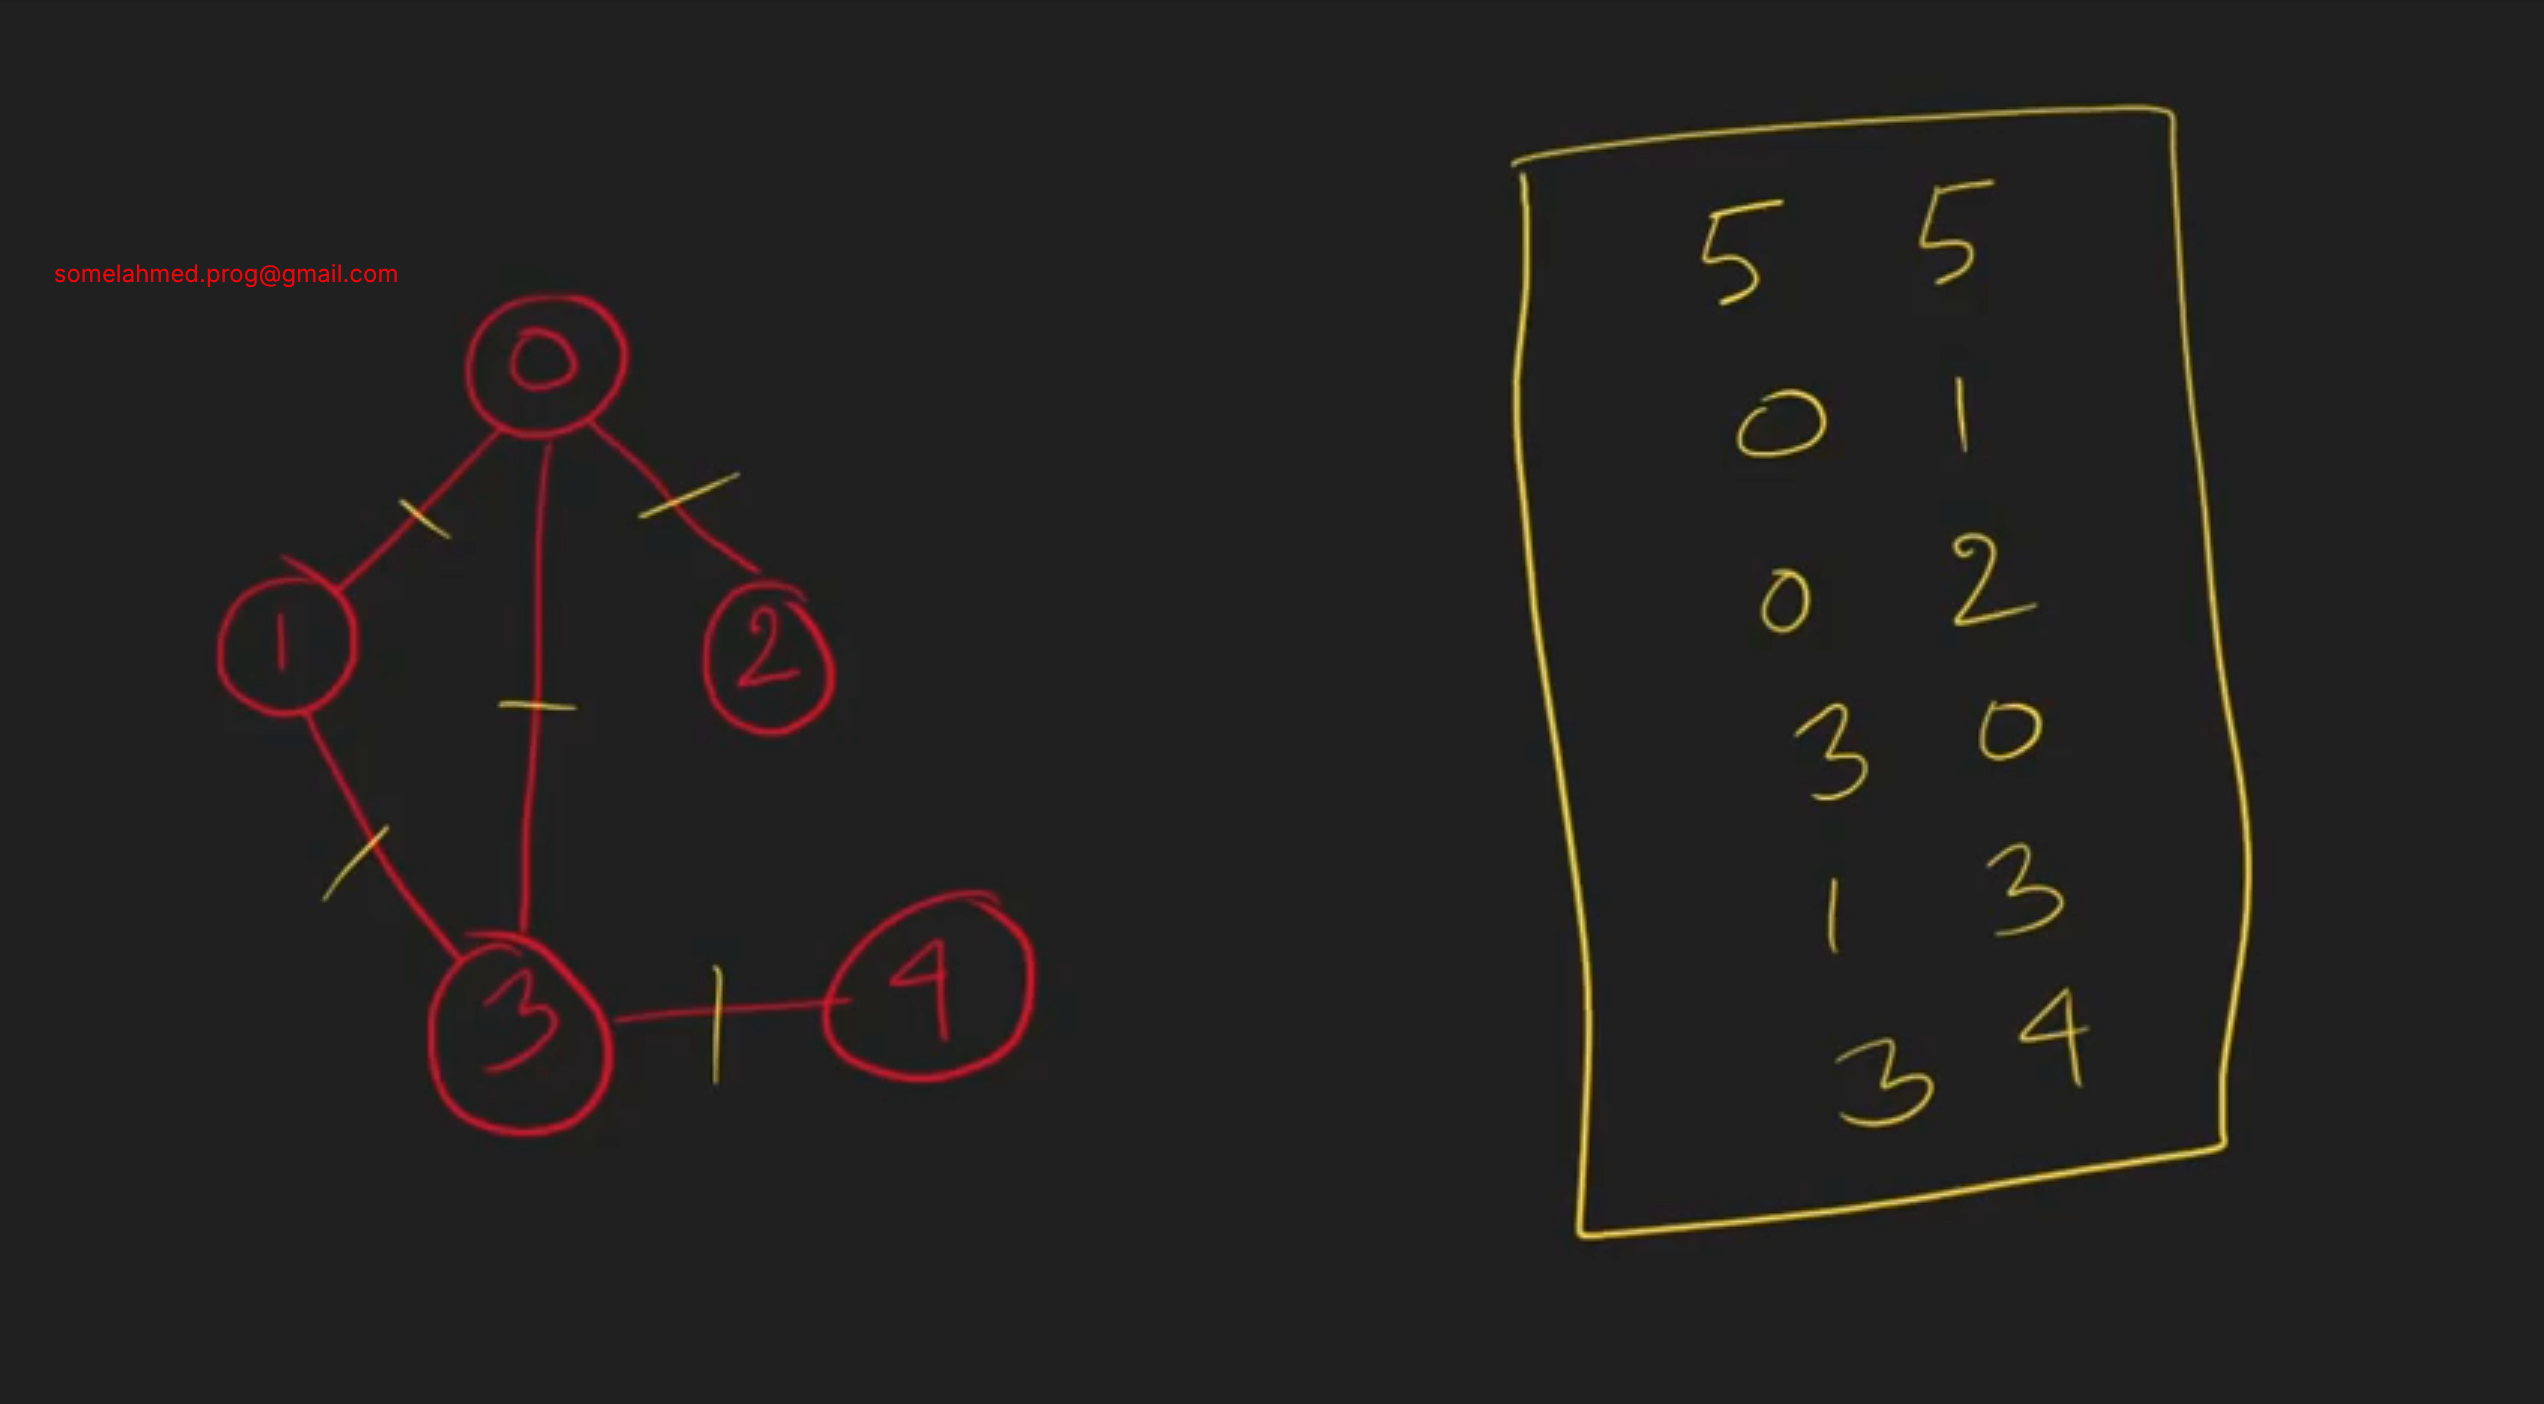 somelahmed.prog@gmail.com
0
1
2
3
4
5 5
0 1
0 2
3 0
1 3
3 4